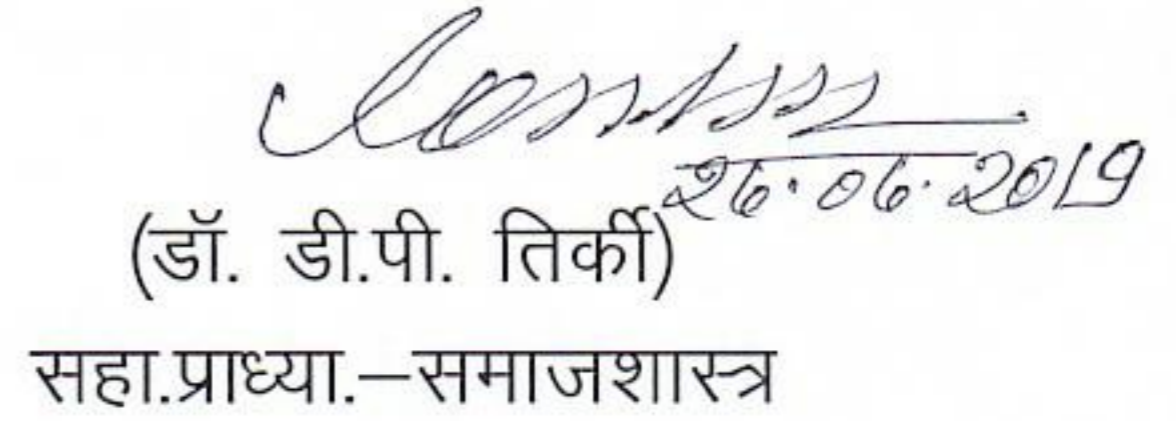 26.06.2019
(डॉ. डी.पी. तिर्की)
सहा.प्राध्या.–समाजशास्त्र